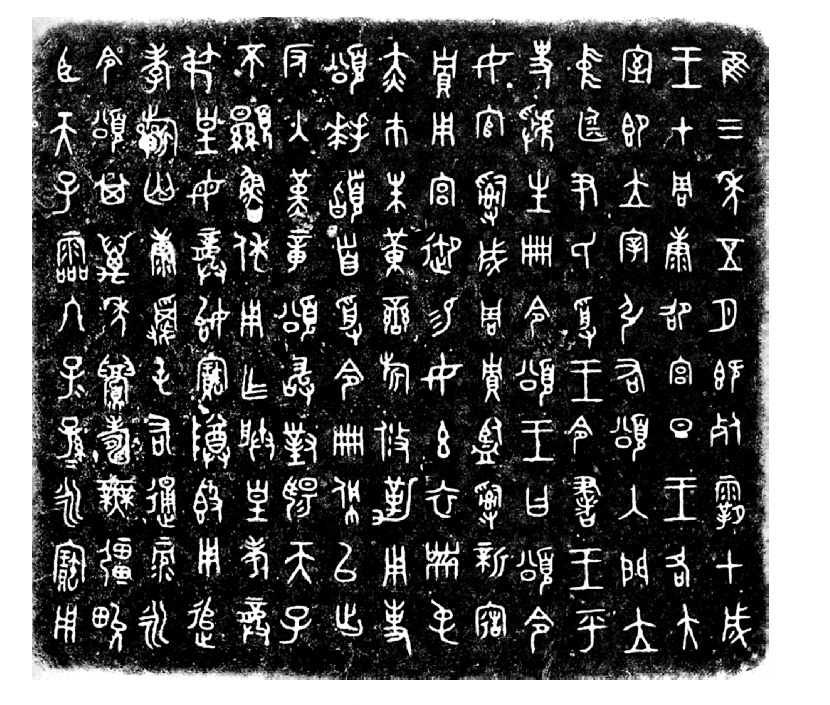 隹三年五月既死霸甲戌
王才周康卲宮旦王各大
室即立宰弘右頌入門立
中廷尹氏受王令書王乎
史虢生冊令頌王曰頌令
女官𤔲成周貯監𤔲新造
貯用宮御易女玄衣黹屯
赤巿朱黃䜌旂攸勒用事
頌拜𩒨首受令冊佩㠯出
反入堇章頌敢對揚天子
不顯魯休用乍朕皇考龔
弔皇母龔始寶尊𣪘用追
孝祈匄康𩛥屯右通彔永
令頌其萬年眉壽無彊畯
臣天子霝冬子=孫=永寶用